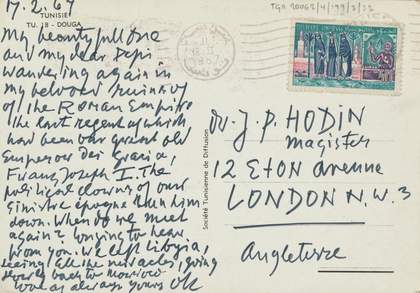 17.2.67
TUNISIE
TU. 18 - DOUGA
My beautyfull one
and my dear Pepi
wandering again in
my beloved ruins
of the Roman Empire
the last regent of which
had been our great old
Emperor Dei Gracia,
Franz Joseph I. The
political clowns of our
sinistre épogue than him
down. When do we meet
again? Longing to hear
from you. We left Libyia,
seeing all the miracles, going
slowly back to Morocco
Love as always yours OK
Société Tunisienne de Diffusion
TGA 20062/4/199/3/32
Dr. J. P. HODIN
magister
12 ETON avenue
LONDON N.W. 3
Angleterre